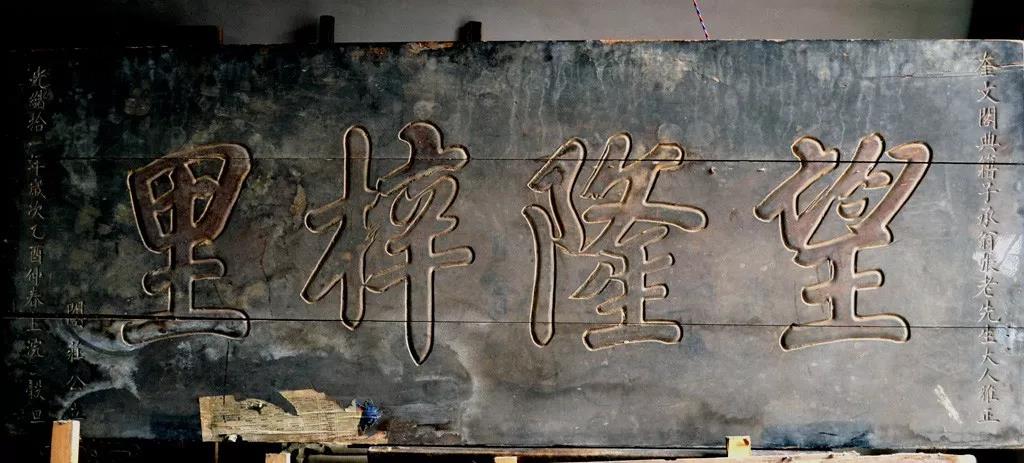 奎文閣典籍子承翁張老先生大人雅正
望隆梓里
闔莊公立
光緒拾一年歲次乙酉仲春上浣穀旦